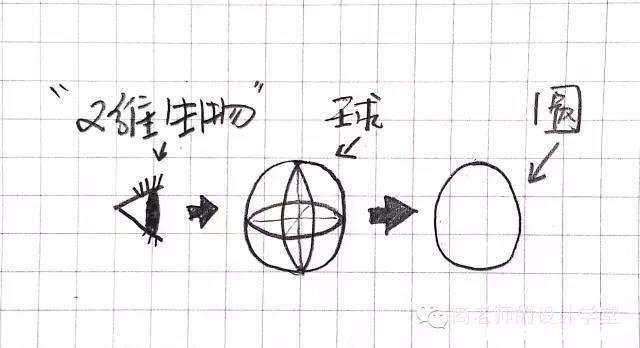 “2维生物” 球 圆
高老师的设计学堂